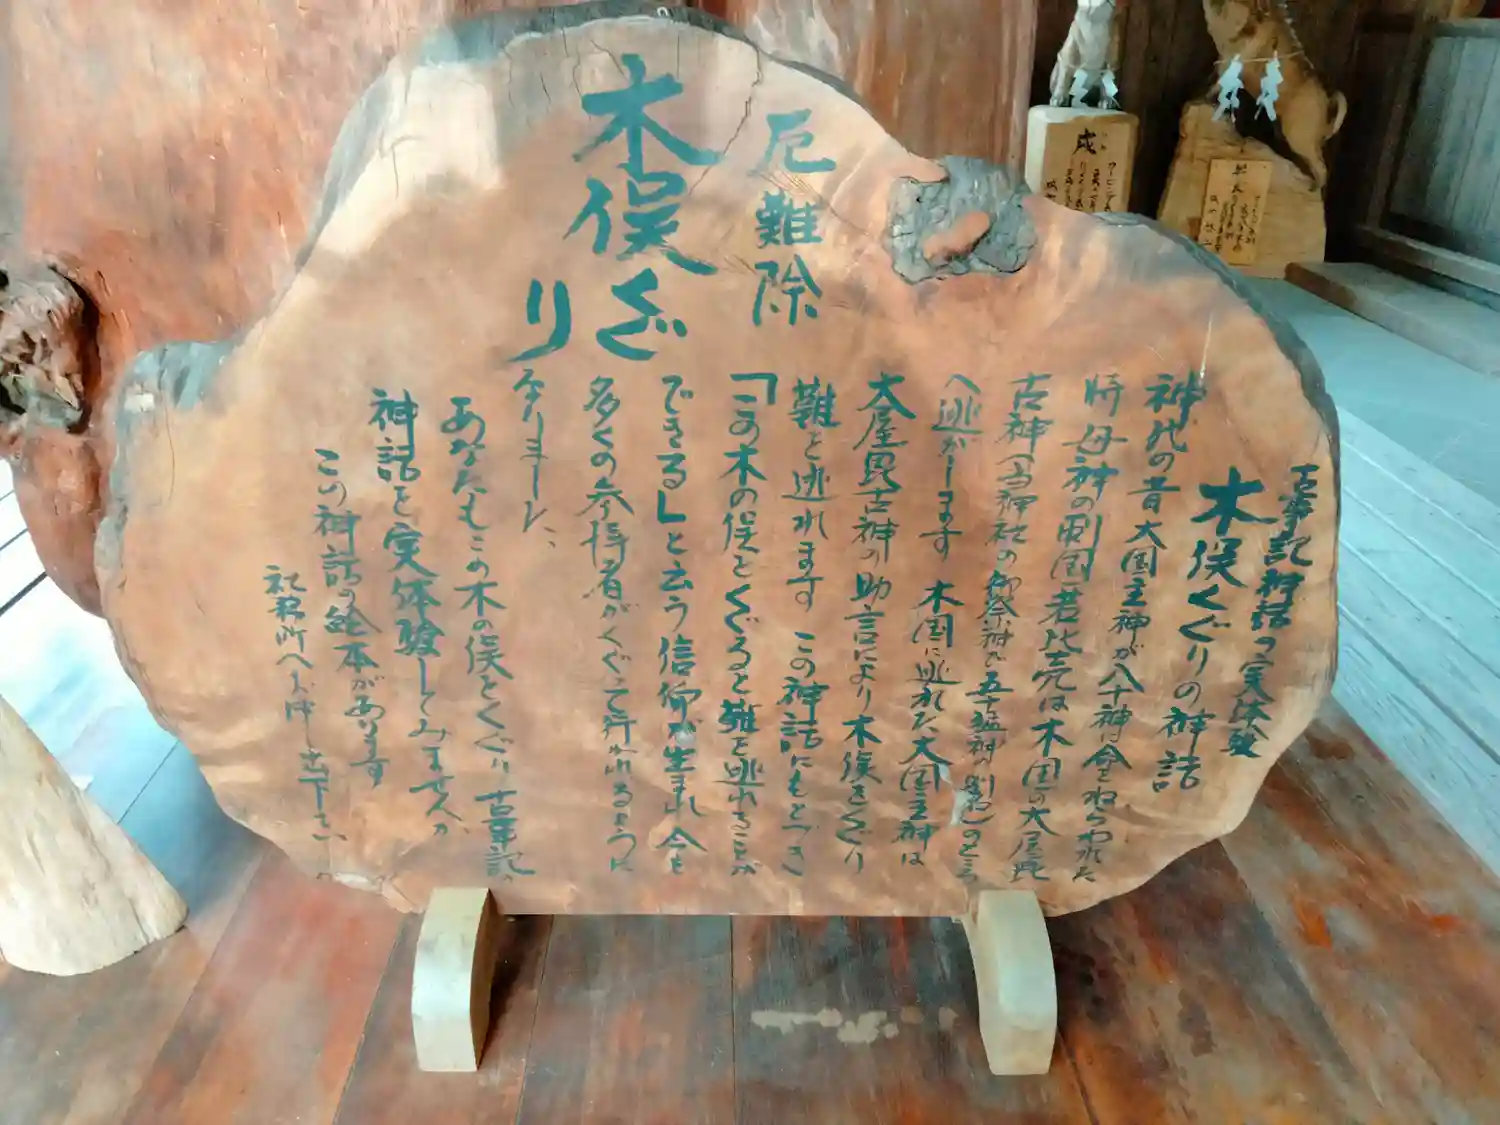 古事記神話の実体験
木俣くぐりの神話
神代の昔大国主神が八十神に命をねらわれた
時母神の刺国若比売は木国の大屋毘
古神(当神社の御祭神で五十猛神の別名)のところ
へ逃がします 木国に逃れた大国主神は
大屋毘古神の助言により木俣をくぐり
難を逃れます この神話にもとづき
「この木の俣をくぐると難を逃れることが
できる」と云う信仰が生まれ 今も
多くの参拝者がくぐって行かれるように
なりました、
あなたもこの木の俣をくぐり古事記の
神話を実体験してみませんか
この神話の絵本があります
社務所へお申し出下さい
厄難除
木俣くぐ
り
戌